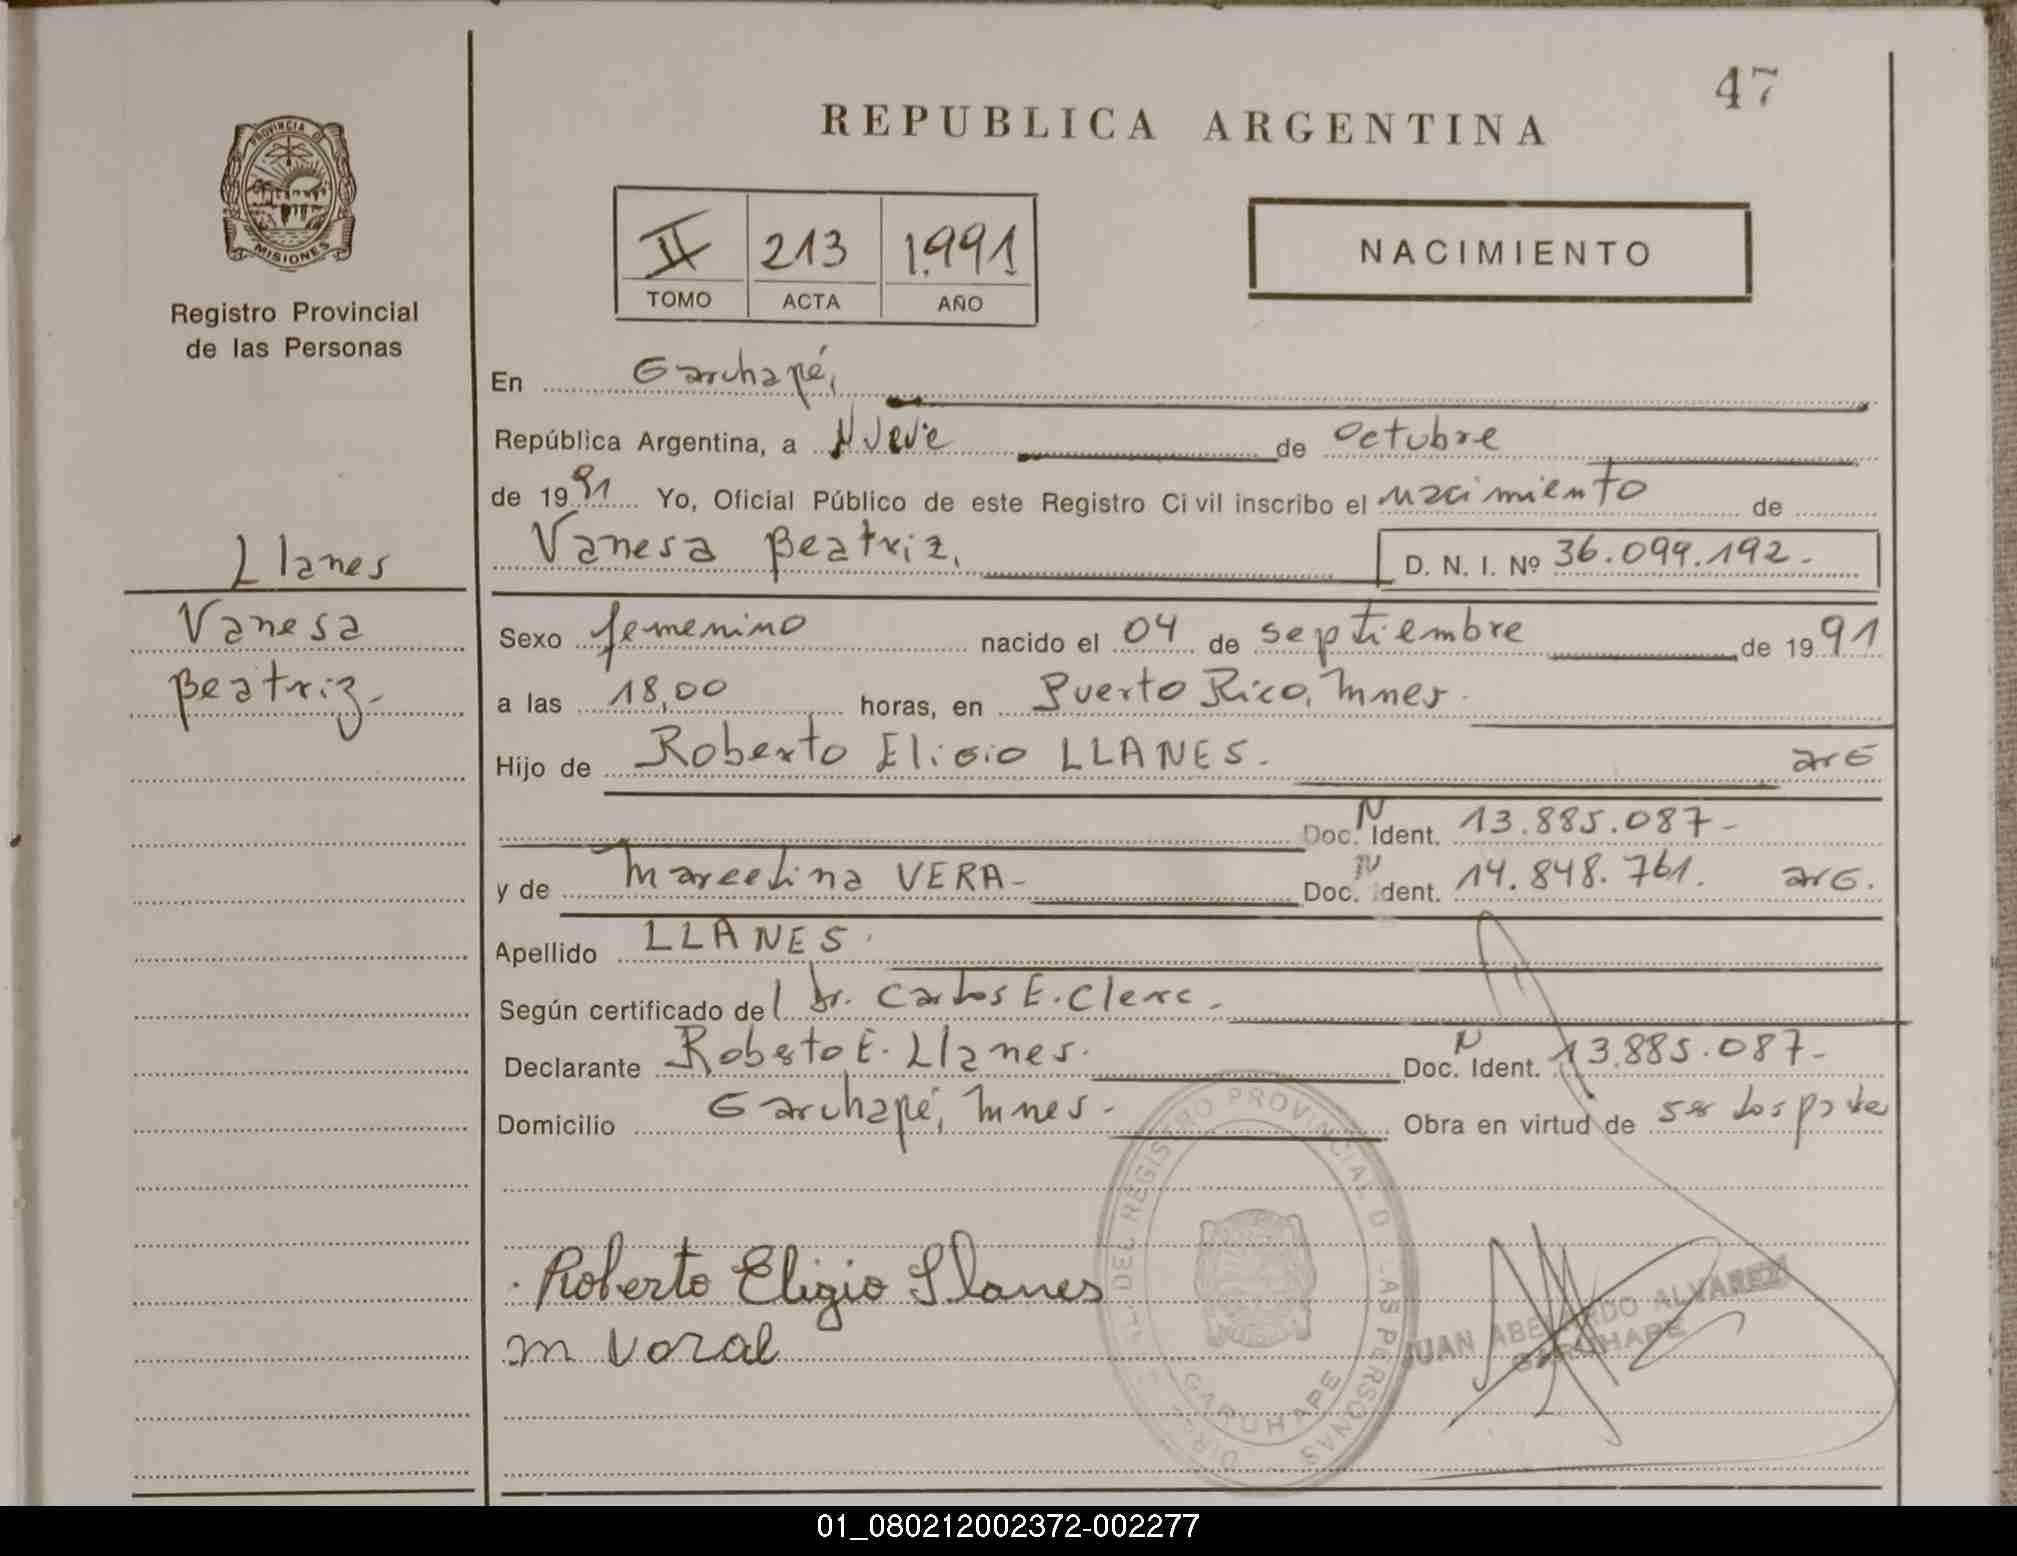 47
REPUBLICA ARGENTINA
PROVINCIA DE
MISIONES
Registro Provincial
de las Personas
II 213 1.991
TOMO ACTA AÑO
NACIMIENTO
En Garuhapé,
República Argentina, a Nueve de Octubre
de 1991 Yo, Oficial Público de este Registro Civil inscribo el nacimiento de
Vanesa Beatriz, D. N. I. Nº 36.099.192.-
Llanes
Vanesa
Beatriz.-
Sexo femenino nacido el 04 de septiembre de 1991
a las 18,00 horas, en Puerto Rico, Mnes.
Hijo de Roberto Eligio LLANES. arG
Doc. N Ident. 13.885.087-
y de Marcelina VERA- Doc. N Ident. 14.848.761. arG.
Apellido LLANES.
Según certificado del Dr. Carlos E. Clerc.
Declarante Roberto E. Llanes. Doc. N Ident. 13.885.087-
Domicilio Garuhapé, Mnes- Obra en virtud de ser los
Roberto Eligio Llanes
DEL REGISTRO PROVINCIAL DE LAS PERSONAS
GARUHAPE
JUAN ABELARDO ALVAREZ
GARUHAPE
01_080212002372-002277